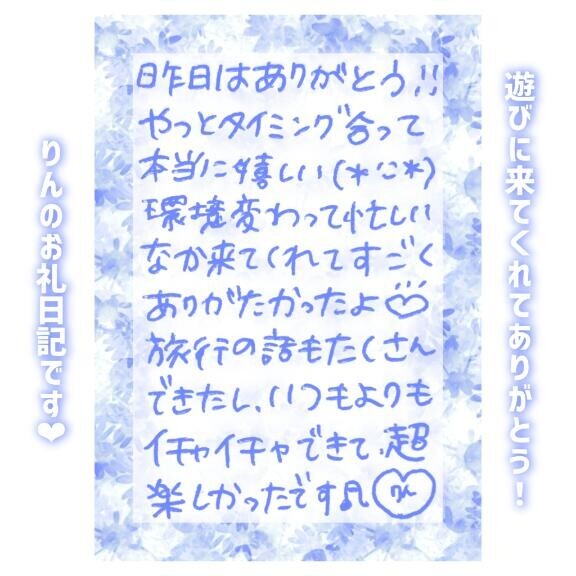 遊びに来てくれてありがとう！
昨日はありがとう!!
やっとタイミング合って
本当に嬉しい(*'ω'*)
環境変わって忙しい
なか来てくれてすごく
ありがたかったよ♡
旅行の話もたくさん
できたし、いつもよりも
イチャイチャできて、超
楽しかったです♬ りん
りんのお礼日記です❤